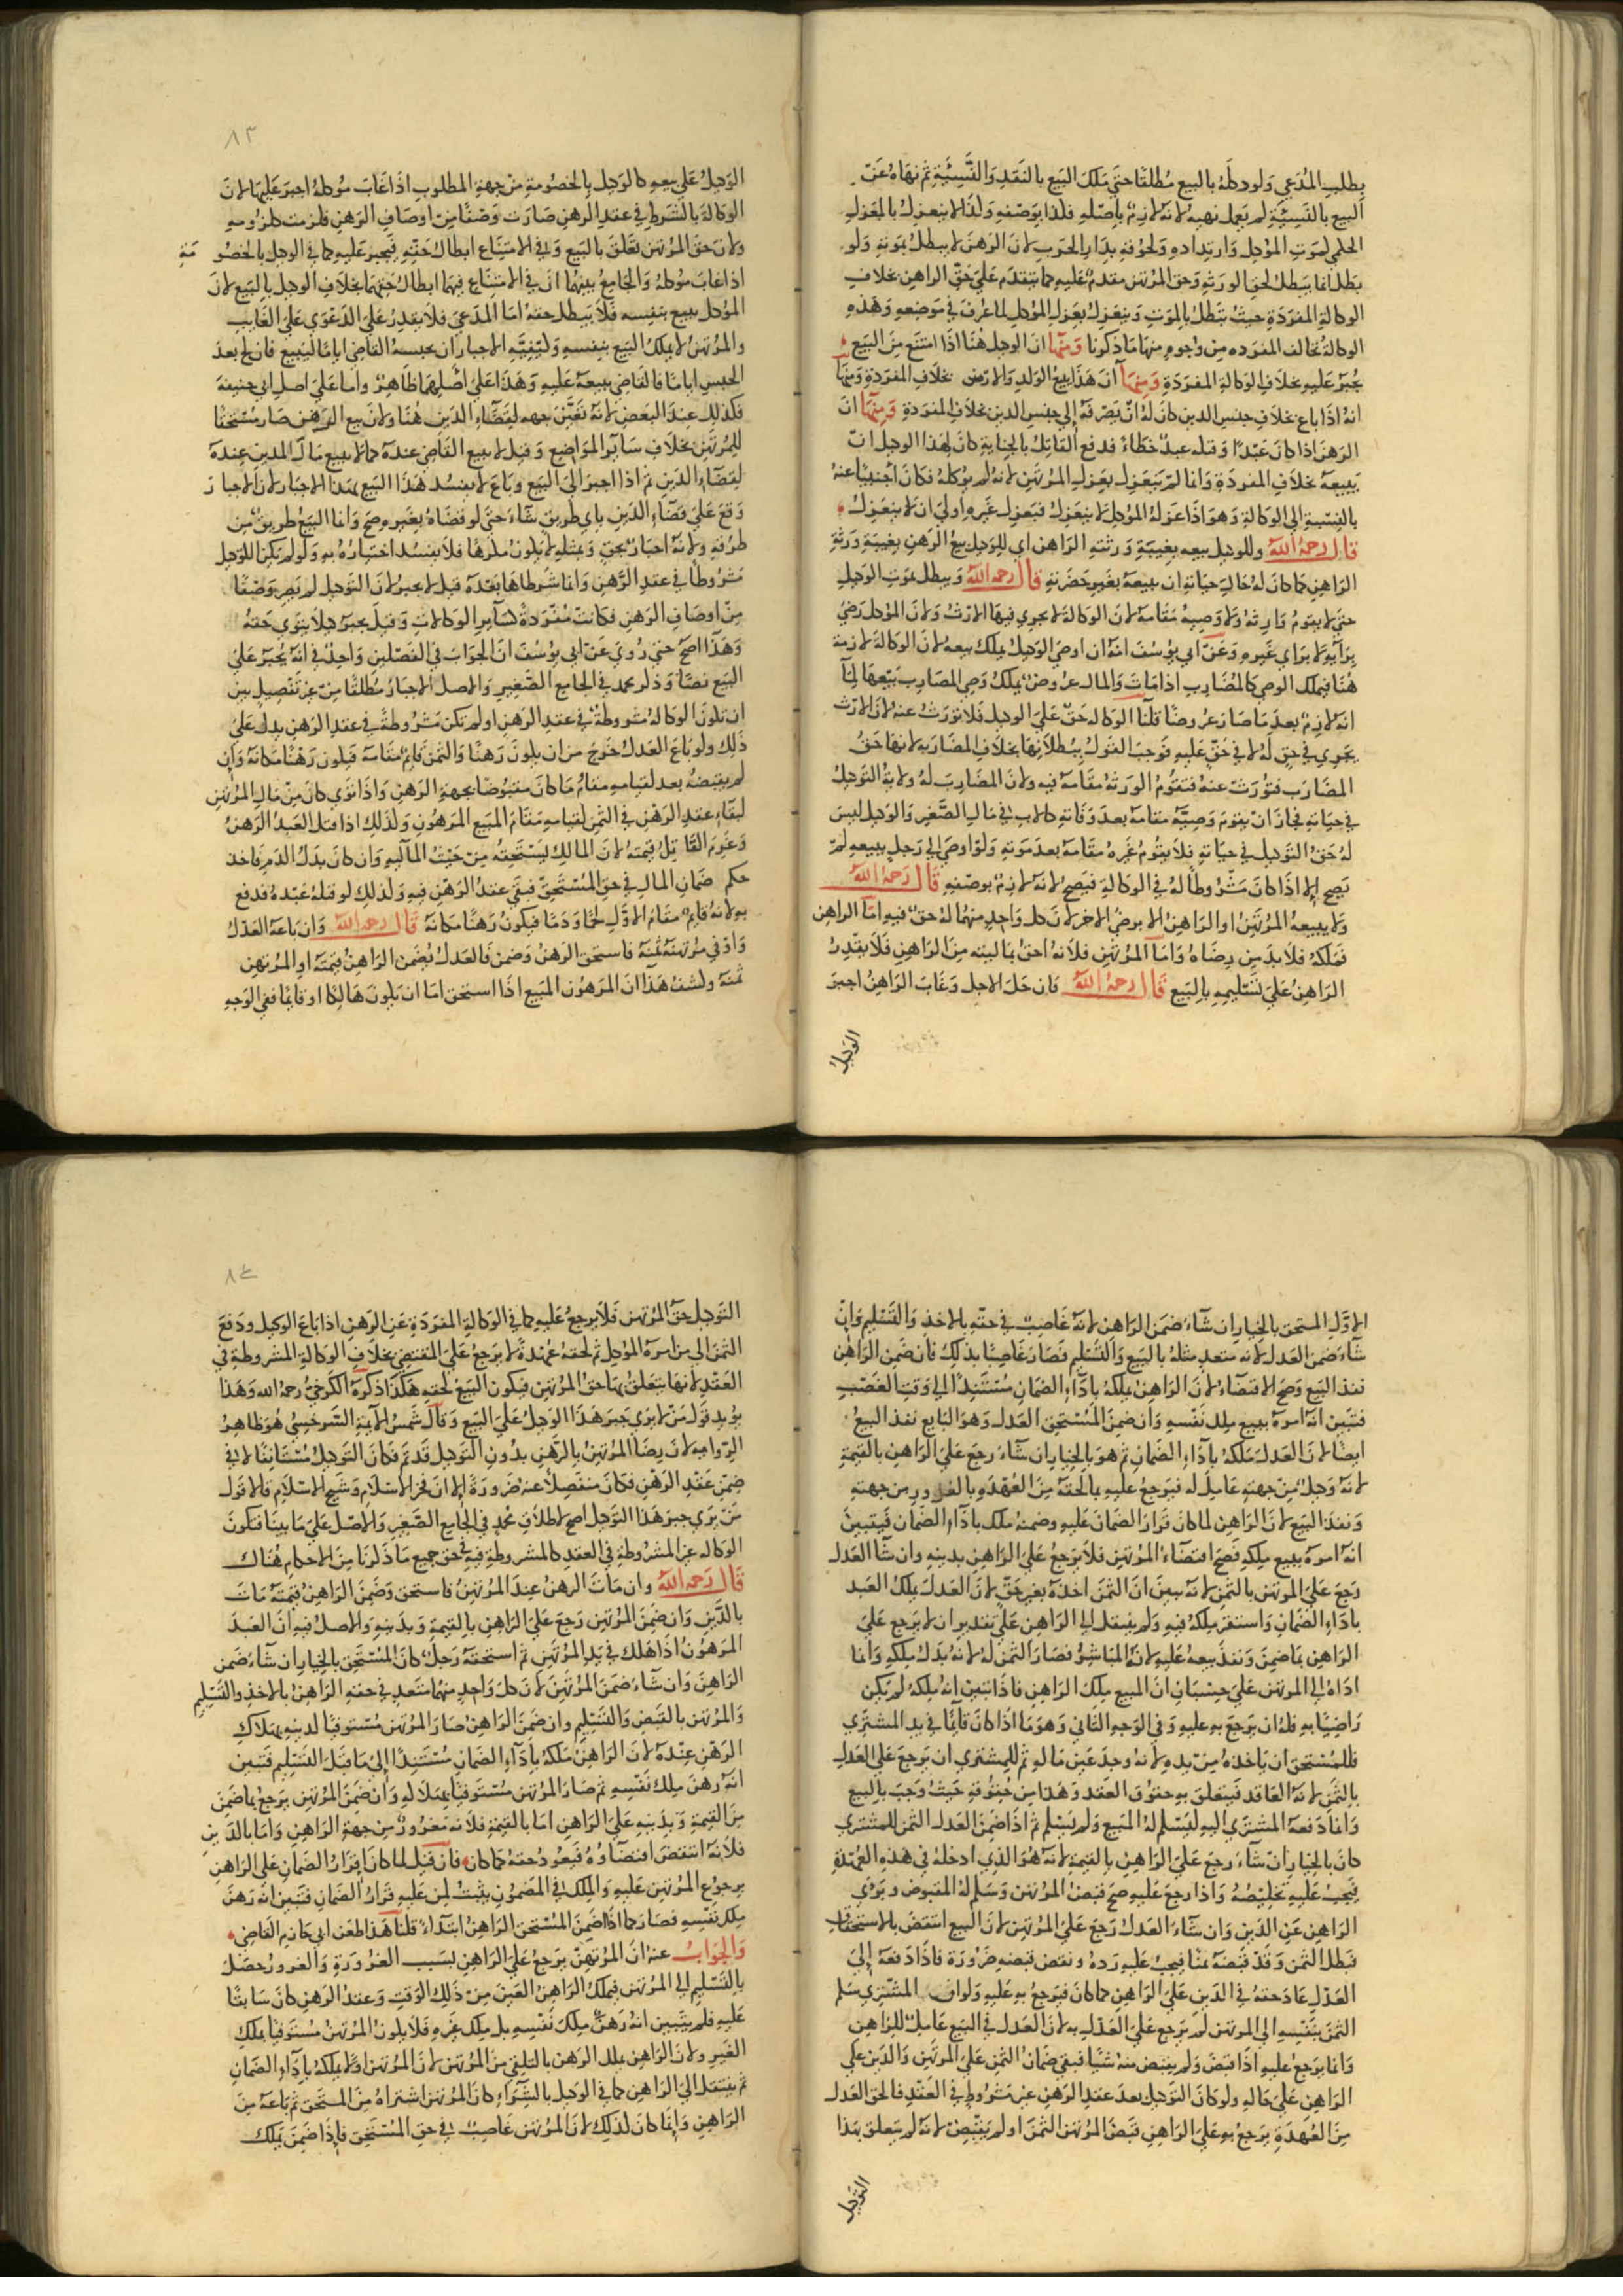 بطلب المدعي ولو وكله بالبيع مطلقا حتى ملك البيع بالنقد والنسيئة ثم نهاه عن
البيع بالنسيئة لم يعمل نهيه لانه لازم باصله فكذا بوصفه وكذا لا ينعزل بالعزل
الحكمي كموت الموكل وارتداده ولحوقه بدار الحرب لان الرهن لا يبطل بموته ولو
بطل انما يبطل لحق الورثة وحق المرتهن مقدم عليه كما يتقدم على حق الراهن بخلاف
الوكالة المفردة حيث تبطل بالموت وينعزل بعزل الموكل لما عرف في موضعه وهذه
الوكالة تخالف المفرده من وجوه منها ما ذكرنا ومنها ان الوكيل هنا اذا امتنع من البيع
يجبر عليه بخلاف الوكالة المفردة ومنها ان هذا يبيع الولد والارش بخلاف المفردة ومنها
انه اذا باع بخلاف جنس الدين كان له ان يصرفه الى جنس الدين بخلاف المفردة ومنها ان
الرهن اذا كان عبدا وقتله عبد خطاء فدفع القاتل بالجناية كان لهذا الوكيل ان
يبيعه بخلاف المفردة وانما لم ينعزل بعزل المرتهن لانه لم يوكله فكان اجنبيا عنه
بالنسبة الى الوكالة وهو اذا عزله الموكل لا ينعزل فبعزل غيره اولى ان لا ينعزل
قال رحمه الله وللوكيل بيعه بغيبة ورثته الراهن اي للوكيل بيع الرهن بغيبة ورثة
الراهن كما كان له حال حياته ان يبيعه بغير حضرته قال رحمه الله ويبطل بموت الوكيل
حتى لا يقوم وارثه ولا وصيه مقامه لان الوكالة لا يجري فيها الارث ولان الموكل رضي
برايه لا براي غيره وعن ابي يوسف انه ان اوصى الوكيل يملك بيعه لان الوكالة لازمة
هنا فيملك الوصي كالمضارب اذا مات والمال عروض يملك وصي المضارب بيعها لما
انه لازم بعد ما صار عروضا قلنا الوكاله حق على الوكيل فلا تورث عنه لان الارث
يجري في حق له لا في حق عليه فوجب القول ببطلانها بخلاف المضاربه لانها حق
المضارب فتورث عنه فتقوم الورثه مقامه فيه ولان المضارب له ولاية التوكيل
في حياته فجاز ان يقوم وصيه مقامه بعد وفاته كالاب في مال الصغير والوكيل ليس
له حق التوكيل في حياته فلا يقوم غيره مقامه بعد موته ولو اوصى الى رجل ببيعه لم
يصح الا اذا كان مشروطا له في الوكالة فيصح لانه لازم بوصفه قال رحمه الله
ولا يبيعه المرتهن او الراهن الا برضى الاخر لان كل واحد منهما له حق فيه اما الراهن
فملكه فلا بد من رضاه واما المرتهن فلانه احق بماليته من الراهن فلا يقدر
الراهن على تسليمه بالبيع قال رحمه الله فان حل الاجل وغاب الراهن اجبر
الوكيل
٨٣
الوكيل على بيعه كالوكيل بالخصومة من جهة المطلوب اذا غاب موكله اجبر عليها لان
الوكالة بالشرط في عقد الرهن صارت وصفا من اوصاف الرهن فلزمت كلزومه
ولان حق المرتهن تعلق بالبيع وفي الامتناع ابطال حقه فيجبر عليه كما في الوكيل بالخصومة
اذا غاب موكله والجامع بينهما ان في الامتناع فيهما ابطال حقهما بخلاف الوكيل بالبيع لان
الموكل يبيع بنفسه فلا يبطل حقه اما المدعي فلا يقدر على الدعوى على الغايب
والمرتهن لا يملك البيع بنفسه وكيفية الاجبار ان يحبسه القاضي اياما ليبيع فان لج بعد
الحبس اياما فالقاضي يبيعه عليه وهذا على اصلهما ظاهر واما على اصل ابي حنيفة
فكذلك عند البعض لانه تعين جهه لقضاء الدين هنا ولان بيع الرهن صار مستحقا
للمرتهن بخلاف ساير المواضع وقيل لا يبيع القاضي عنده كما لا يبيع مال المدين عنده
لقضاء الدين ثم اذا اجبر الى البيع وباع لا يفسد هذا البيع بهذا الاجبار لان الاجبار
وقع على قضاء الدين باي طريق شاء حتى لو قضاه بغيره صح وانما البيع طريق من
طرقه ولانه اجبار بحق وبمثله لا يكون مكرها فلا يفسد اختياره به ولو لم يكن الوكيل
مشروطا في عقد الرهن وانما شرطاها بعده قيل لا يجبر لان التوكيل لم يصر وصفا
من اوصاف الرهن فكانت مفردة كساير الوكالات وقيل يجبر كيلا يتوى حقه
وهذا اصح حتى روي عن ابي يوسف ان الجواب في الفصلين واحد في انه يجبر على
البيع نصا وذكر محمد في الجامع الصغير والاصل الاجبار مطلقا من غير تفصيل بين
ان تكون الوكالة مشروطة في عقد الرهن او لم تكن مشروطة في عقد الرهن يدل على
ذلك ولو باع العدل خرج من ان يكون رهنا والثمن قايم مقامه فيكون رهنا مكانه وان
لم يقبضه بعد لقيامه مقام ما كان مقبوضا بجهة الرهن واذا توى كان من مال المرتهن
لبقاء عقد الرهن في الثمن لقيامه مقام المبيع المرهون وكذلك اذا قتل العبد الرهن
وغرم القاتل قيمته لان المالك يستحقه من حيث المالية وان كان بدل الدم فاخذ
حكم ضمان المال في حق المستحق فبقي عقد الرهن فيه وكذلك لو قتله عبد فدفع
به لانه قايم مقام الاول لحما ودما فيكون رهنا مكانه قال رحمه الله وان باعه العدل
واوفى مرتهنه ثمنه فاستحق الرهن وضمن فالعدل يضمن الراهن قيمته او المرتهن
ثمنه وكشف هذا ان المرهون المبيع اذا استحق اما ان يكون هالكا او قايما ففي الوجه
الاول المستحق بالخيار ان شاء ضمن الراهن لانه غاصب في حقه بالاخذ والتسليم وان
شاء ضمن العدل لانه متعد مثله بالبيع والتسليم فصار غاصبا بذلك فان ضمن الراهن
نفذ البيع وصح الاقتضاء لان الراهن ملكه باداء الضمان مستندا الى وقت الغصب
فتبين انه امره ببيع ملك نفسه وان ضمن المستحق العدل وهو البايع نفذ البيع
ايضا لان العدل ملكه باداء الضمان ثم هو بالخيار ان شاء رجع على الراهن بالقيمة
لانه وكيل من جهته عامل له فيرجع عليه بالحقه من العهدة وبالغرور من جهته
ونفذ البيع لان الراهن لما كان قرار الضمان عليه وضمنه ملك باداء الضمان فيتبين
انه امره ببيع ملكه فصح اقتضاء المرتهن فلا يرجع على الراهن بدينه وان شاء العدل
رجع على المرتهن بالثمن لانه تبين ان الثمن اخذه بغير حق لان العدل يملك العبد
باداء الضمان واستقر ملكه فيه ولم ينتقل الى الراهن على تقدير ان لا يرجع على
الراهن بما ضمن ونفذ بيعه عليه لانه المباشر فصار الثمن له لانه بدل ملكه وانما
اداه الى المرتهن على حسبان ان المبيع ملك الراهن فاذا تبين انه ملكه لم يكن
راضيا به فله ان يرجع به عليه وفي الوجه الثاني وهو ما اذا كان قايما في يد المشتري
فللمستحق ان ياخذه من يده لانه وجد عين ماله ثم للمشتري ان يرجع على العدل
بالثمن لانه العاقد فيتعلق به حقوق العقد وهذا من حقوقه حيث وجب بالبيع
وانما دفعه المشتري اليه ليسلم له المبيع ولم يسلم ثم اذا ضمن العدل الثمن للمشتري
كان بالخيار ان شاء رجع على الراهن بالقيمة لانه هو الذي ادخله في هذه العهدة
فيجب عليه تخليصه واذا رجع عليه صح قبض المرتهن وسلم له المقبوض وبري
الراهن عن الدين وان شاء العدل رجع على المرتهن لان البيع انتقض بالاستحقاق
فبطل الثمن وقد قبضه ثمنا فيجب عليه رده ونقض قبضه ضرورة فاذا دفعه الى
العدل عاد حقه في الدين على الراهن كما كان فيرجع به عليه ولو ان المشتري سلم
الثمن بنفسه الى المرتهن لم يرجع على العدل به لان العدل في البيع عامل للراهن
وانما يرجع عليه اذا قبض ولم يقبض منه شيا فبقي ضمان الثمن على المرتهن والدين على
الراهن على حاله ولو كان التوكيل بعد عقد الرهن غير مشروط في العقد فالحق العدل
من العهدة يرجع به على الراهن قبض المرتهن الثمن او لم يقبض لانه لم يتعلق بهذا
التوكيل
٨٤
التوكيل حق المرتهن فلا يرجع عليه كما في الوكالة المفردة عن الرهن اذا باع الوكيل ودفع
الثمن الى من امره الموكل ثم لحقه عهدة لا يرجع على المقتضي بخلاف الوكالة المشروطة في
العقد لانها يتعلق بها حق المرتهن فيكون البيع لحقه هكذا ذكره الكرخي رحمه الله وهذا
يؤيد قول من لا يرى جبر هذا الوكيل على البيع وقال شمس الائمة السرخسي هو ظاهر
الرواجه لان رضا المرتهن بالرهن بدون التوكيل قد تم فكان التوكيل مستانفا لا في
ضمن عقد الرهن فكان منفصلا عنه ضرورة الا ان فخر الاسلام وشيخ الاسلام قالا قول
من يرى جبر هذا الوكيل اصح لاطلاق محمد في الجامع الصغير والاصل على ما بينا فتكون
الوكاله غير المشروطة في العقد كالمشروطة فيه في حق جميع ما ذكرنا من الاحكام هناك
قال رحمه الله وان مات الرهن عند المرتهن فاستحق وضمن الراهن قيمته مات
بالدين وان ضمن المرتهن رجع على الراهن بالقيمة وبدينه والاصل فيه ان العبد
المرهون اذا هلك في يد المرتهن ثم استحقه رجل كان المستحق بالخيار ان شاء ضمن
الراهن وان شاء ضمن المرتهن لان كل واحد منهما متعد في حقه الراهن بالاخذ والتسليم
والمرتهن بالقبض والتسليم وان ضمن الراهن صار المرتهن مستوفيا لدينه بهلاك
الرهن عنده لان الراهن ملكه باداء الضمان مستندا الى ما قبل التسليم فتبين
انه رهن ملك نفسه ثم صار المرتهن مستوفيا بهلاكه وان ضمن المرتهن يرجع بما ضمن
من القيمة وبدينه على الراهن اما بالقيمة فلانه مغرور من جهة الراهن واما بالدين
فلانه انتقض اقتضاؤه فيعود حقه كما كان فان قيل لما كان قرار الضمان على الراهن
برجوع المرتهن عليه والملك في المضمون يثبت لمن عليه قرار الضمان فتبين انه رهن
ملك نفسه فصار كما اذا ضمن المستحق الراهن ابتداء قلنا هذا طعن ابي حازم القاضي
والجواب عنه ان المرتهن يرجع على الراهن بسبب الغرور والغرور حصل
بالتسليم الى المرتهن فيملك الراهن العين من ذلك الوقت وعقد الرهن كان سابقا
عليه فلم يتبين انه رهن ملك نفسه بل ملك غيره فلا يكون المرتهن مستوفيا بملك
الغير ولان الراهن يملك الرهن بالتلقي من المرتهن لان المرتهن اولا يملكه باداء الضمان
ثم ينتقل الى الراهن كما في الوكيل بالشراء كان المرتهن اشتراه من المستحق ثم باعه من
الراهن وانما كان لذلك لان المرتهن غاصب في حق المستحق فاذا ضمن يملك